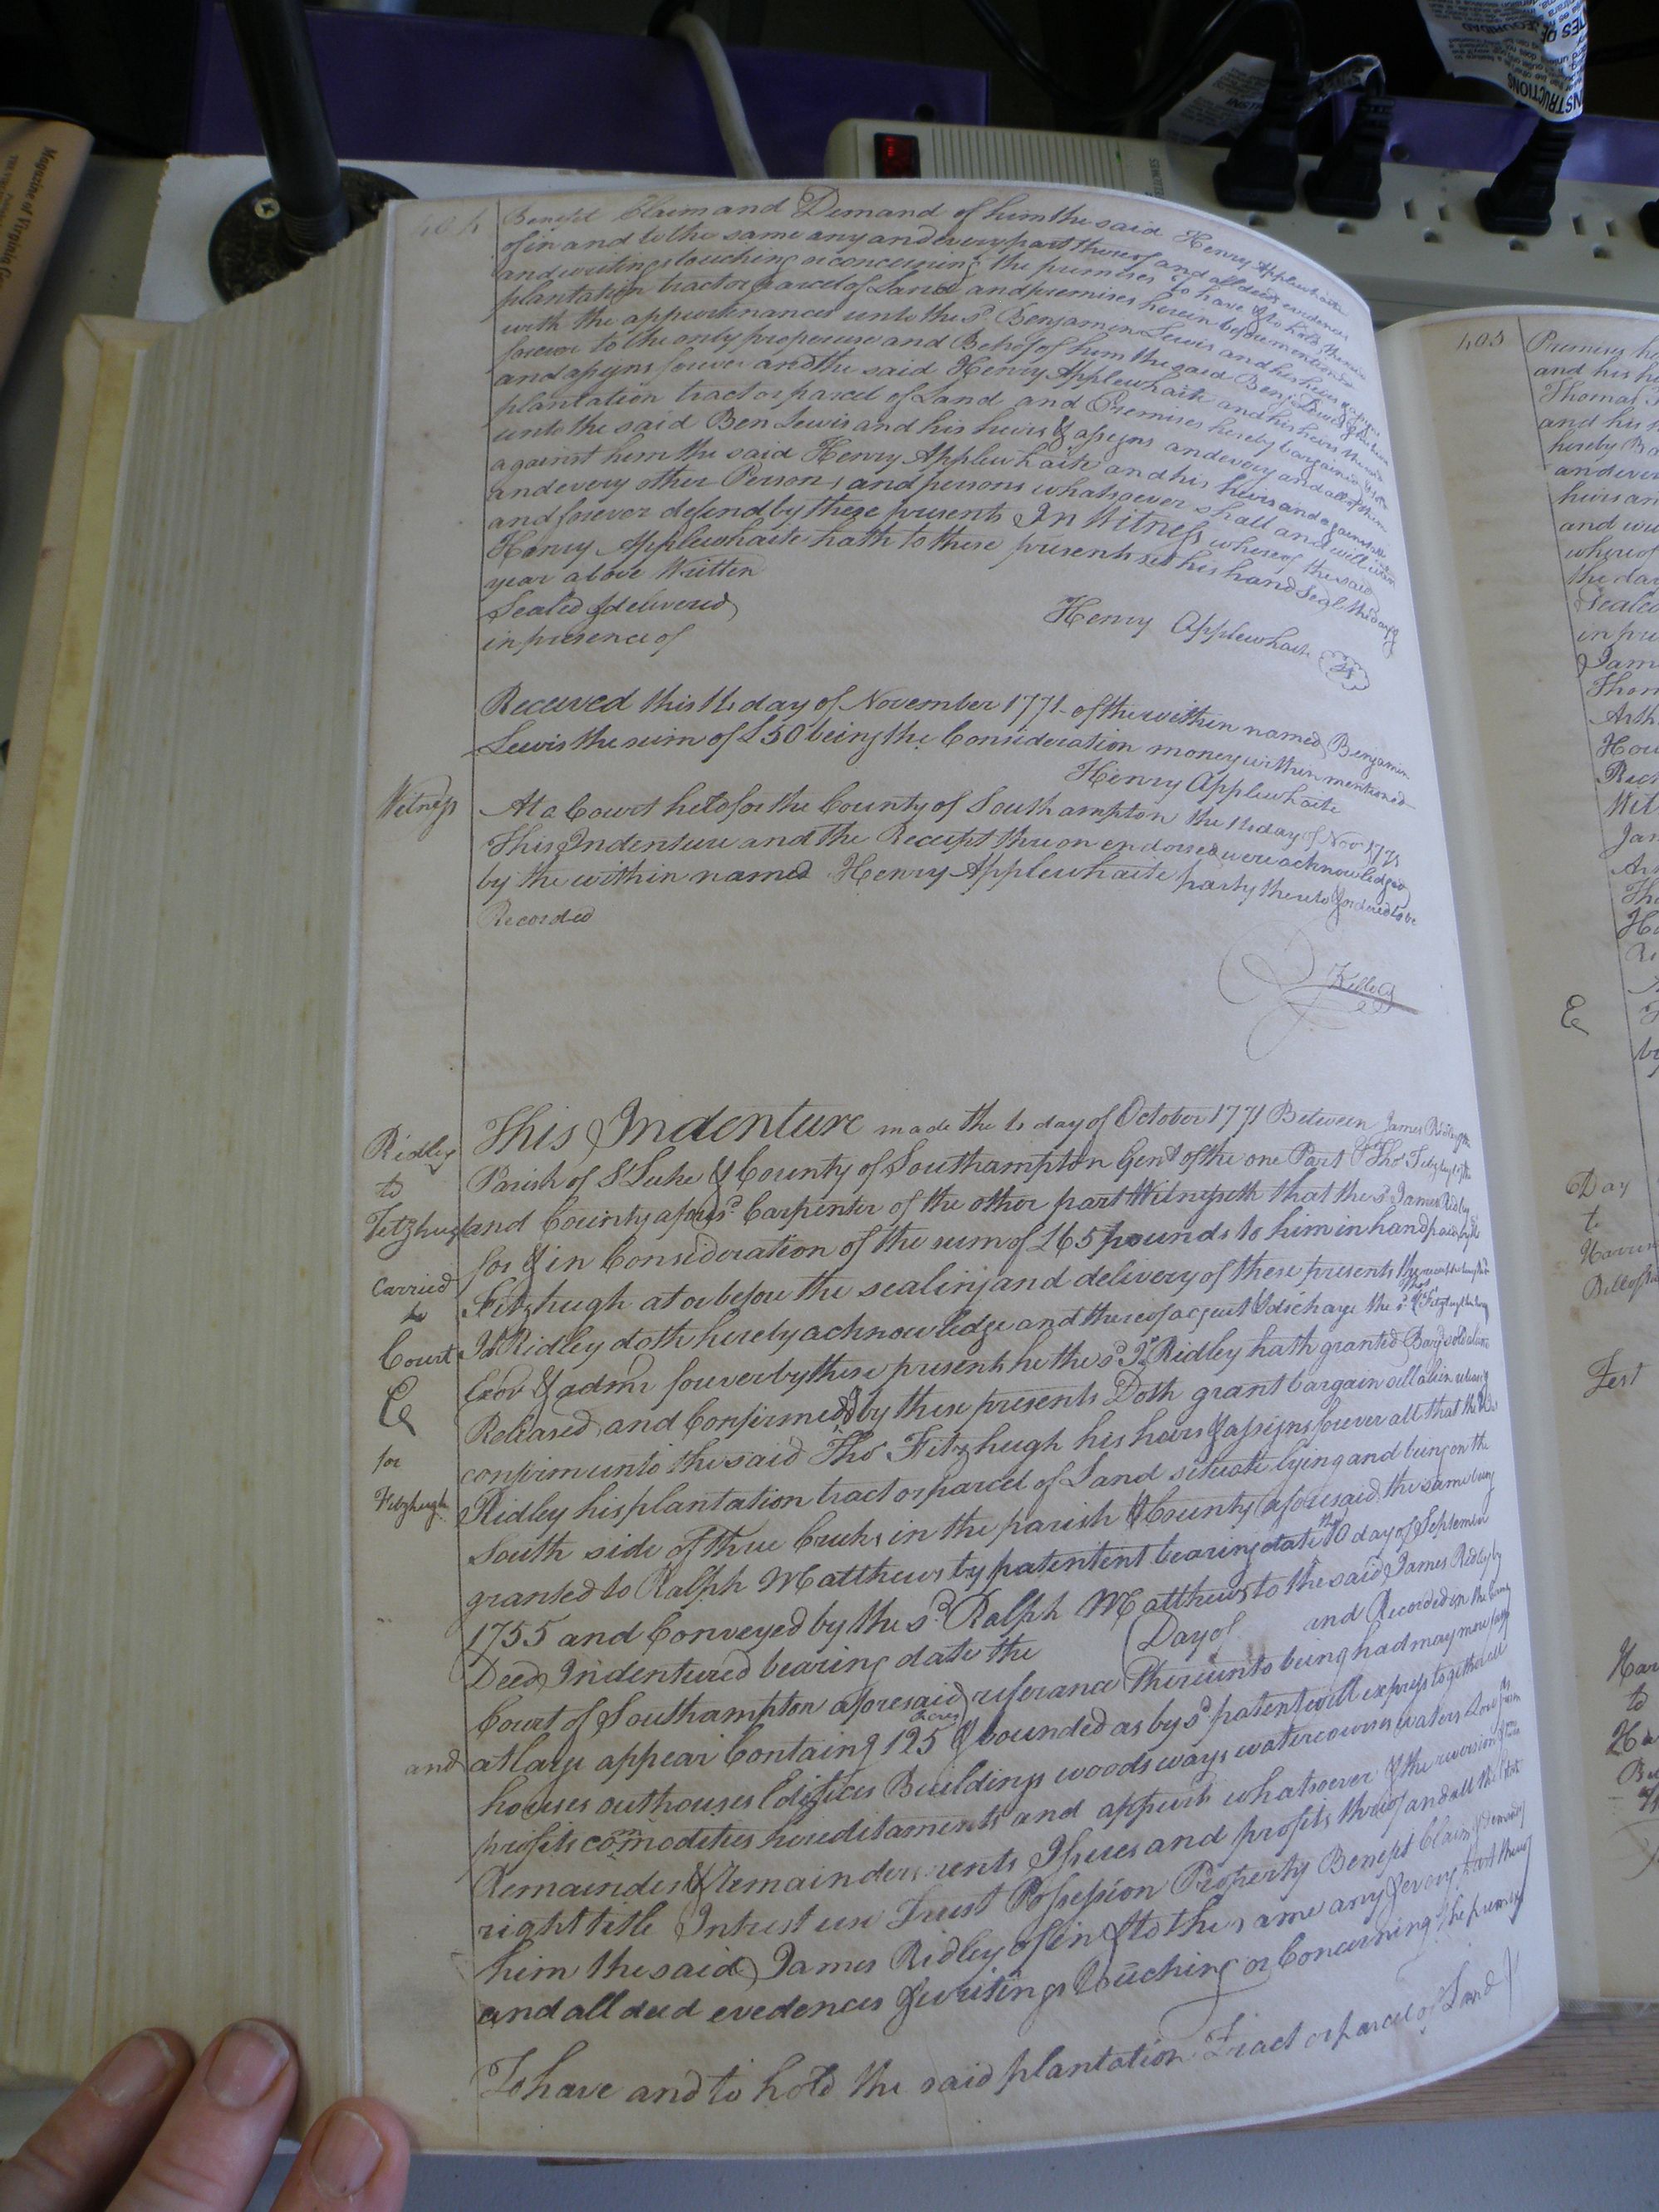 404
Benefit Claim and Demand of him the said Henry Applewhaite
of in and to the same any and every part thereof and all deeds evidences
and writings touching or concerning the premises To have & to hold the said
plantation tract or parcel of Land and premises herein before mentioned
with the appurtenances unto the sd. Benjamin Lewis and his heirs & assigns
forever to the only proper use and Behoof of him the said Benj. Lewis & his heirs
and assigns forever and the said Henry Applewhaite and his heirs the said
plantation tract or parcel of Land and Premises hereby bargained & sold
unto the said Ben Lewis and his heirs & assigns and every and all of them
against him the said Henry Applewhaite and his heirs and against all
and every other Person, and persons whatsoever shall and will warrant
and forever defend by these presents In Witness whereof the said
Henry Applewhaite hath to these presents set his hand Seal the day &
year above Written
Sealed & delivered
in presence of
Henry Applewhaite
Received this 14 day of November 1771 of the within named Benjamin
Lewis the sum of £50 being the Consideration money within mentioned
Henry Applewhaite
Witness
At a Court held for the County of Southampton the 14 day of Nov 1771
This Indenture and the Receipt thereon endorsed were acknowledged
by the within named Henry Applewhaite party thereto & ordered to be
Recorded
Ridley
to
Fitzhugh
Carried
to
Court
for
Fitzhugh
This Indenture made the day of October 1771 Between James Ridley of the
Parish of St Luke & County of Southampton Gent of the one Part & Tho Fitzhugh of the
and County afores. Carpenter of the other part Witnesseth that the sd. James Ridley
for & in Consideration of the sum of £65 pounds to him in hand paid by the
Fitzhugh at or before the sealing and delivery of these presents the
Ja Ridley doth hereby acknowledge and thereof acquit & discharge the sd. Tho Fitzhugh
Exor & admr forever by these presents he the sd. Ja Ridley hath granted Bargd sold
Released and Confirmed & by these presents Doth grant bargain sell alien release
confirm unto the said Tho Fitzhugh his heirs & assigns forever all that the
Ridley his plantation tract or parcel of Land situate lying and being on the
South side of three Creeks in the parish & County aforesaid the same being
granted to Ralph Matthews by patentent bearing date the 10 day of September
1755 and Conveyed by the sd. Ralph Matthews to the said James Ridley by
Deed Indentured bearing date the Day of and Recorded in the
Court of Southampton aforesaid referance Thereunto being had may more
and at large appear Containg 125 acres & bounded as by sd patent will express together all
houses outhouses Edifices Buildings woods ways watercourses waters
profits comodities hereditaments and appurts whatsoever & the reversion
Remainder & remainders rents Issues and profits thereof and all the Estate
right title Intrest use Trust Possession Property Benefit Claim & demand of
him the said James Ridley of in & to the same any & every part thereof
and all deed evedences & writings touching or Concerning the premises
To have and to hold the said plantation Tract or parcel of Land
405
and his
Thomas
and his
hereby
and ever
heirs an
and
whereof
the day
Sealed
in pre
Jam
Thom
Arth
Day
to
Test
to
Magazine of Virginia
INSTRUCTIONS